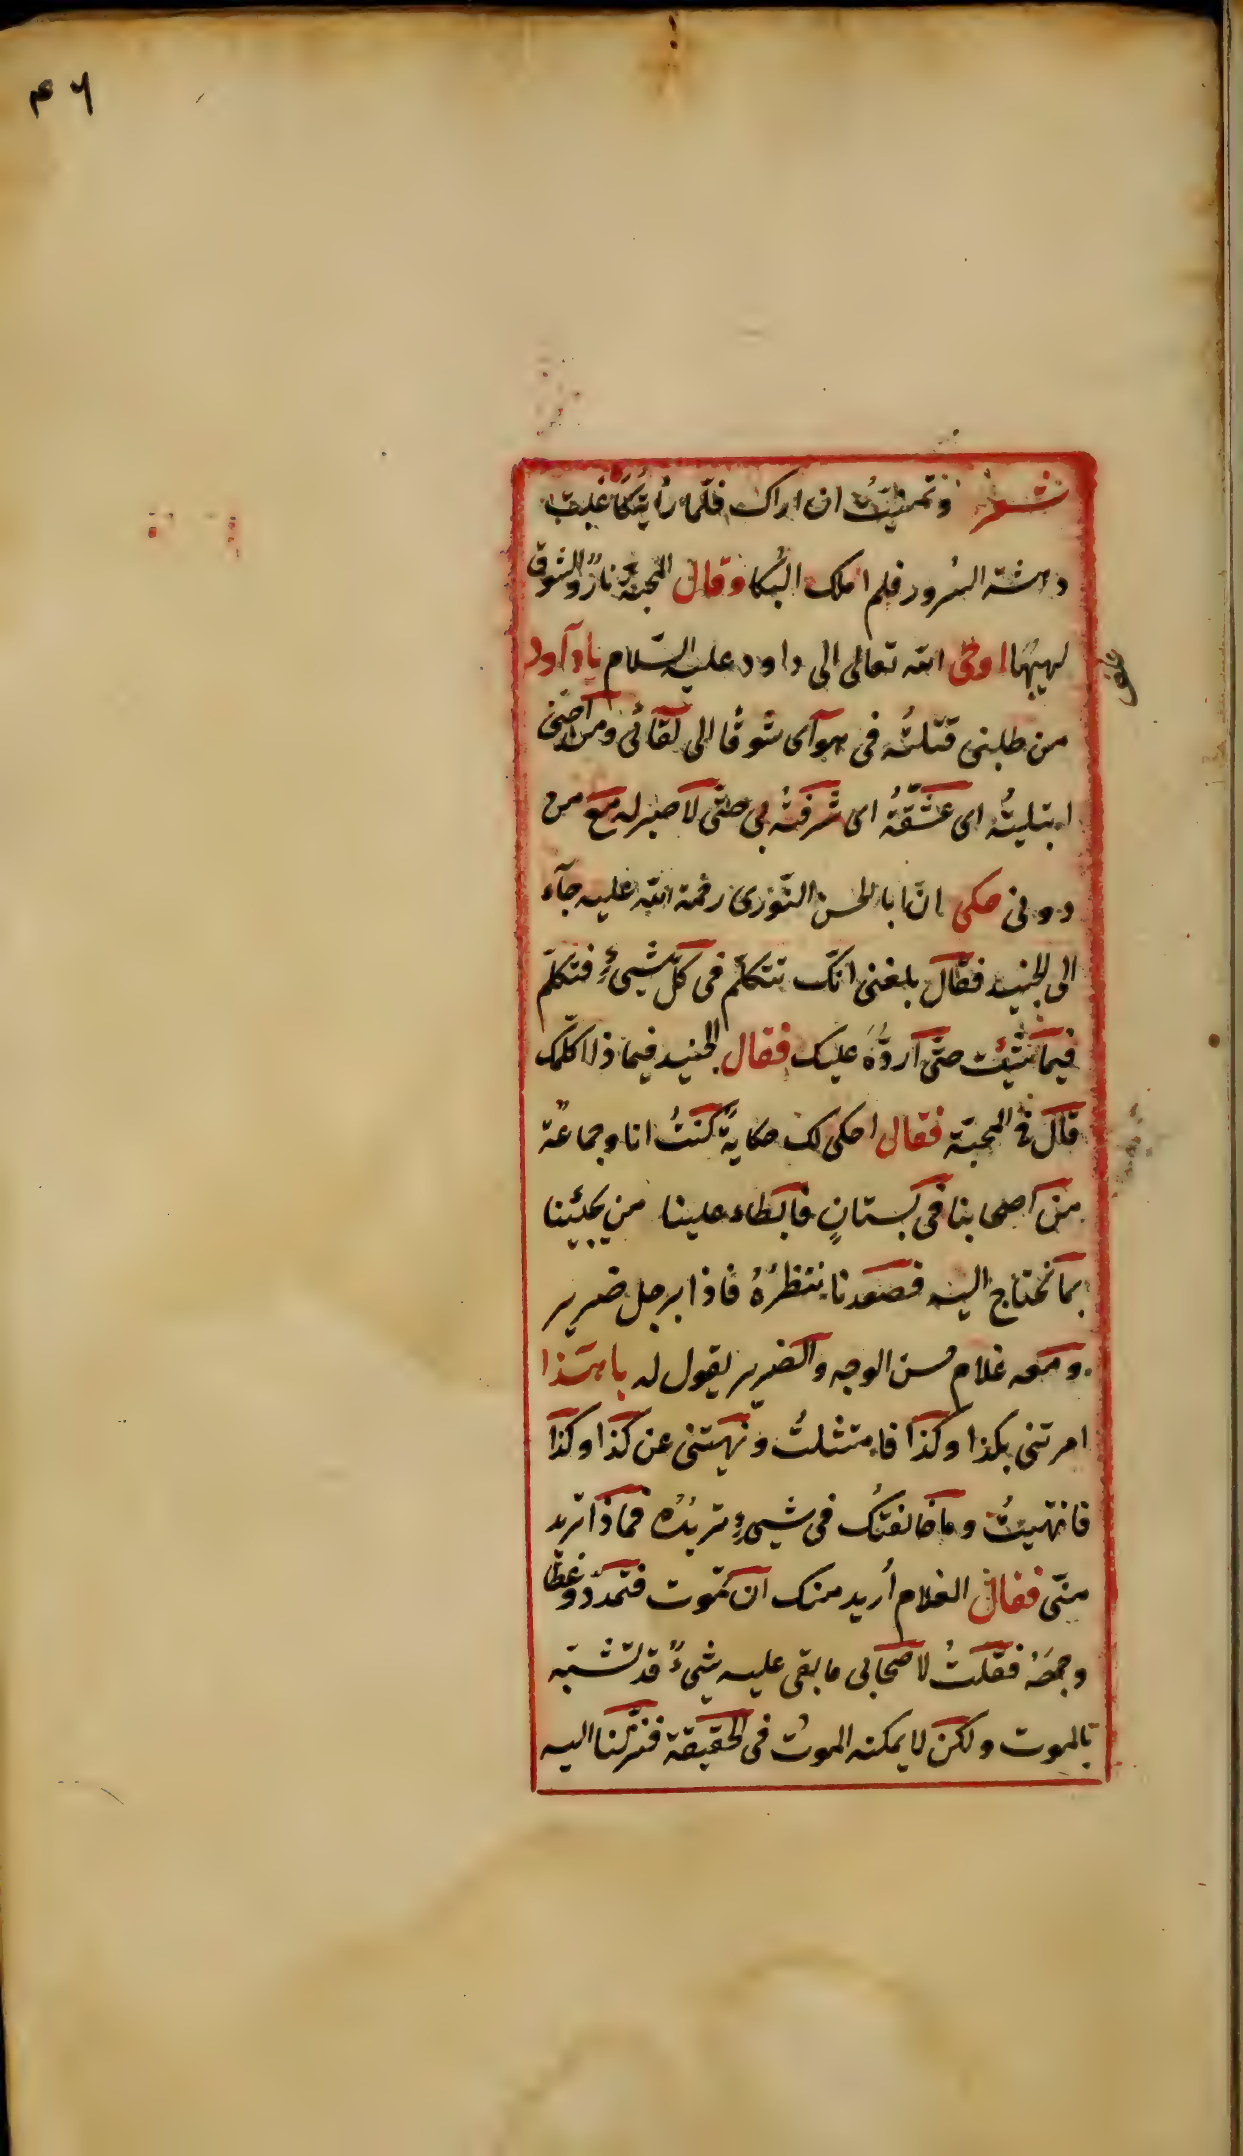 ۴۶
شعر وتمنّيتُ ان اراك فلمّا رأيتكا غلبت
دهشة السُرور فلم املك البُكا وقال المحبّة نارٌ والشوق
لهيبُها اوحى الله تعالى الى داود عليه السّلام يا دآود
من طلبنى قتلتُه فى هوآى شوقا الى لقائى ومن احبّنى
ابتليتُه اى عشّقتُه اى شرفتُه بى حتّى لا صبر له مع من
دونى حكى انّ ابا الحسن النّورى رحمة الله عليه جآء
الى الجنيد فقال بلغنى انّك تتكلّم فى كلّ شىءٍ فتكلّم
فيما شئت حتّى اردّهُ عليك فقال الجنيد فيما ذا اكلّمك
قال فى المحبّة فقال احكى لك حكايةً كنتُ انا وجماعة
من اصحابنا فى بستانٍ فابطاء علينا من يجيئنا
بما نحتاج اليه فصعدنا ننتظرُهُ فاذا برجل ضرير
ومعه غلام حسن الوجه والضرير يقول له يا هذا
امرتنى بكذا وكذا فامتثلتُ ونهيتنى عن كذا وكذا
فانتهيتُ وما خالفتك فى شىءٍ تريدُه فماذا تريد
منّى فقال الغلام أُريد منك ان تموت فتمدّد وغطّا
وجهَهُ فقلتُ لاصحابى ما بقى عليه شىءٌ قد تشبّه
بالموت ولكن لا يمكنه الموت فى الحقيقة فنزلنا اليه